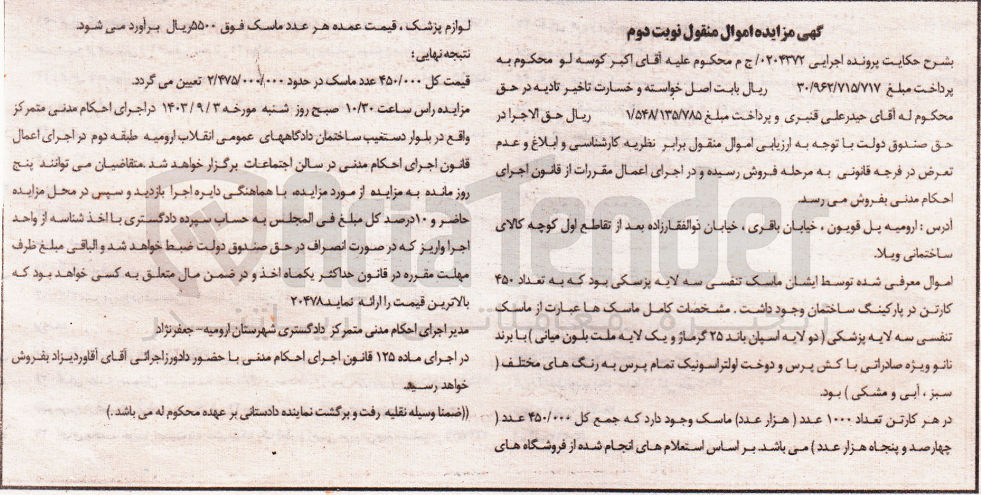 گهی مزایده اموال منقول نوبت دوم
بشرح حکایت پرونده اجرایی ۰۲۰۴۳۷۲/ ج م محکوم علیه آقای اکبر کوسه لو محکوم به
پرداخت مبلغ ۳۰/۹۶۲/۷۱۵/۷۱۷ ریال بابت اصل خواسته و خسارت تاخیر تادیه در حق
محکوم له آقای حیدرعلی قنبری و پرداخت مبلغ ۱/۵۴۸/۱۳۵/۷۸۵ ریال حق الاجرا در
حق صندوق دولت با توجه به ارزیابی اموال منقول برابر نظریه کارشناسی و ابلاغ و عدم
تعرض در فرجه قانونی به مرحله فروش رسیده و در اجرای اعمال مقررات از قانون اجرای
احکام مدنی بفروش می رسد.
آدرس : ارومیه پل قویون ، خیابان باقری ، خیابان ذوالفقارزاده بعد از تقاطع اول کوچه کالای
ساختمانی ویلا.
اموال معرفی شده توسط ایشان ماسک تنفسی سه لایه پزسکی بود که به تعداد ۴۵۰
کارتن در پارکینگ ساختمان وجود داشت . مشخصات کامل ماسک ها عبارت از ماسک
تنفسی سه لایه پزشکی ( دو لایه اسپان باند ۲۵ گرماژ و یک لایه ملت بلون میانی ) با برند
نانو ویژه صادراتی با کش پرس و دوخت اولتراسونیک تمام پرس به رنگ های مختلف (
سبز ، آبی و مشکی ) بود.
در هر کارتن تعداد ۱۰۰۰ عدد ( هزار عدد) ماسک وجود دارد که جمع کل ۴۵۰/۰۰۰ عدد (
چهارصد و پنجاه هزار عدد ) می باشد. بر اساس استعلام های انجام شده از فروشگاه های
لوازم پزشک ، قیمت عمده هر عدد ماسک فوق ۵۵۰۰ریال برآورد می شود.
نتیجه نهایی :
قیمت کل ۴۵۰/۰۰۰ عدد ماسک در حدود ۲/۴۷۵/۰۰۰/۰۰۰ تعیین می گردد.
مزایده راس ساعت ۱۰/۳۰ صبح روز شنبه مورخه ۳ / ۹ / ۱۴۰۳ دراجرای احکام مدنی متمرکز
واقع در بلوار دستغیب ساختمان دادگاههای عمومی انقلاب ارومیه طبقه دوم در اجرای اعمال
قانون اجرای احکام مدنی در سالن اجتماعات برگزار خواهد شد .متقاضیان می توانند پنج
روز مانده به مزایده از مورد مزایده، با هماهنگی دایره اجرا بازدید و سپس در محل مزایده
حاضر و ۱۰درصد کل مبلغ فی المجلس به حساب سپرده دادگستری با اخذ شناسه از واحد
اجرا واریز که در صورت انصراف در حق صندوق دولت ضبط خواهد شد و الباقی مبلغ ظرف
مهلت مقرره در قانون حداکثر یکماه اخذ و در ضمن مال متعلق به کسی خواهد بود که
بالاترین قیمت را ارائه نماید۲۰۴۷۸
مدیر اجرای احکام مدنی متمرکز دادگستری شهرستان ارومیه- جعفرنژاد
در اجرای ماده ۱۲۵ قانون اجرای احکام مدنی با حضور دادورزاجرائی آقای آقاوردیزاد بفروش
خواهد رسید.
((ضمنا وسیله نقلیه رفت و برگشت نماینده دادستانی بر عهده محکوم له می باشد .)